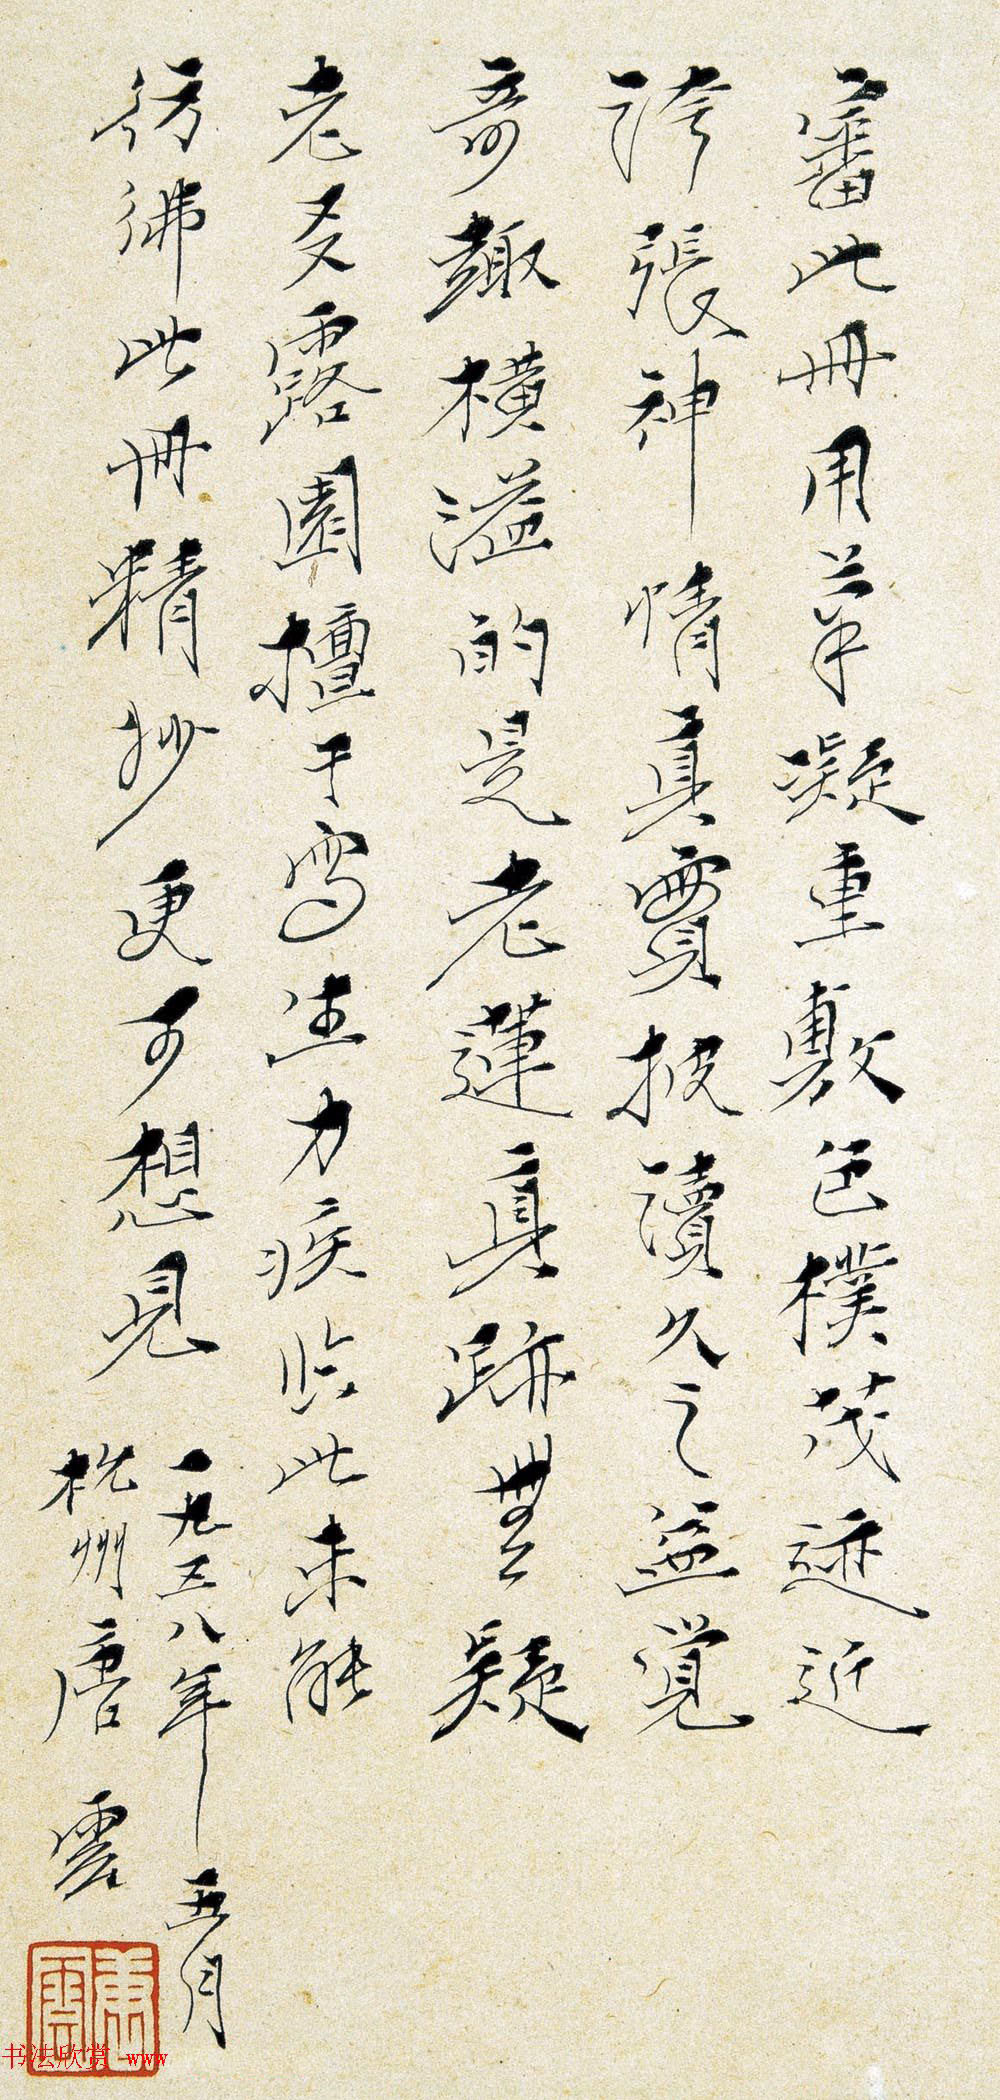 審此冊用筆凝重敷色樸茂迹近
誇張神情真實披讀久之益覺
奇趣橫溢的是老蓮真跡無疑
老友露園擅于寫生力疾临此未能
彷彿此冊精妙更可想見
一九五八年五月
杭州唐雲
唐雲
书法欣赏 www